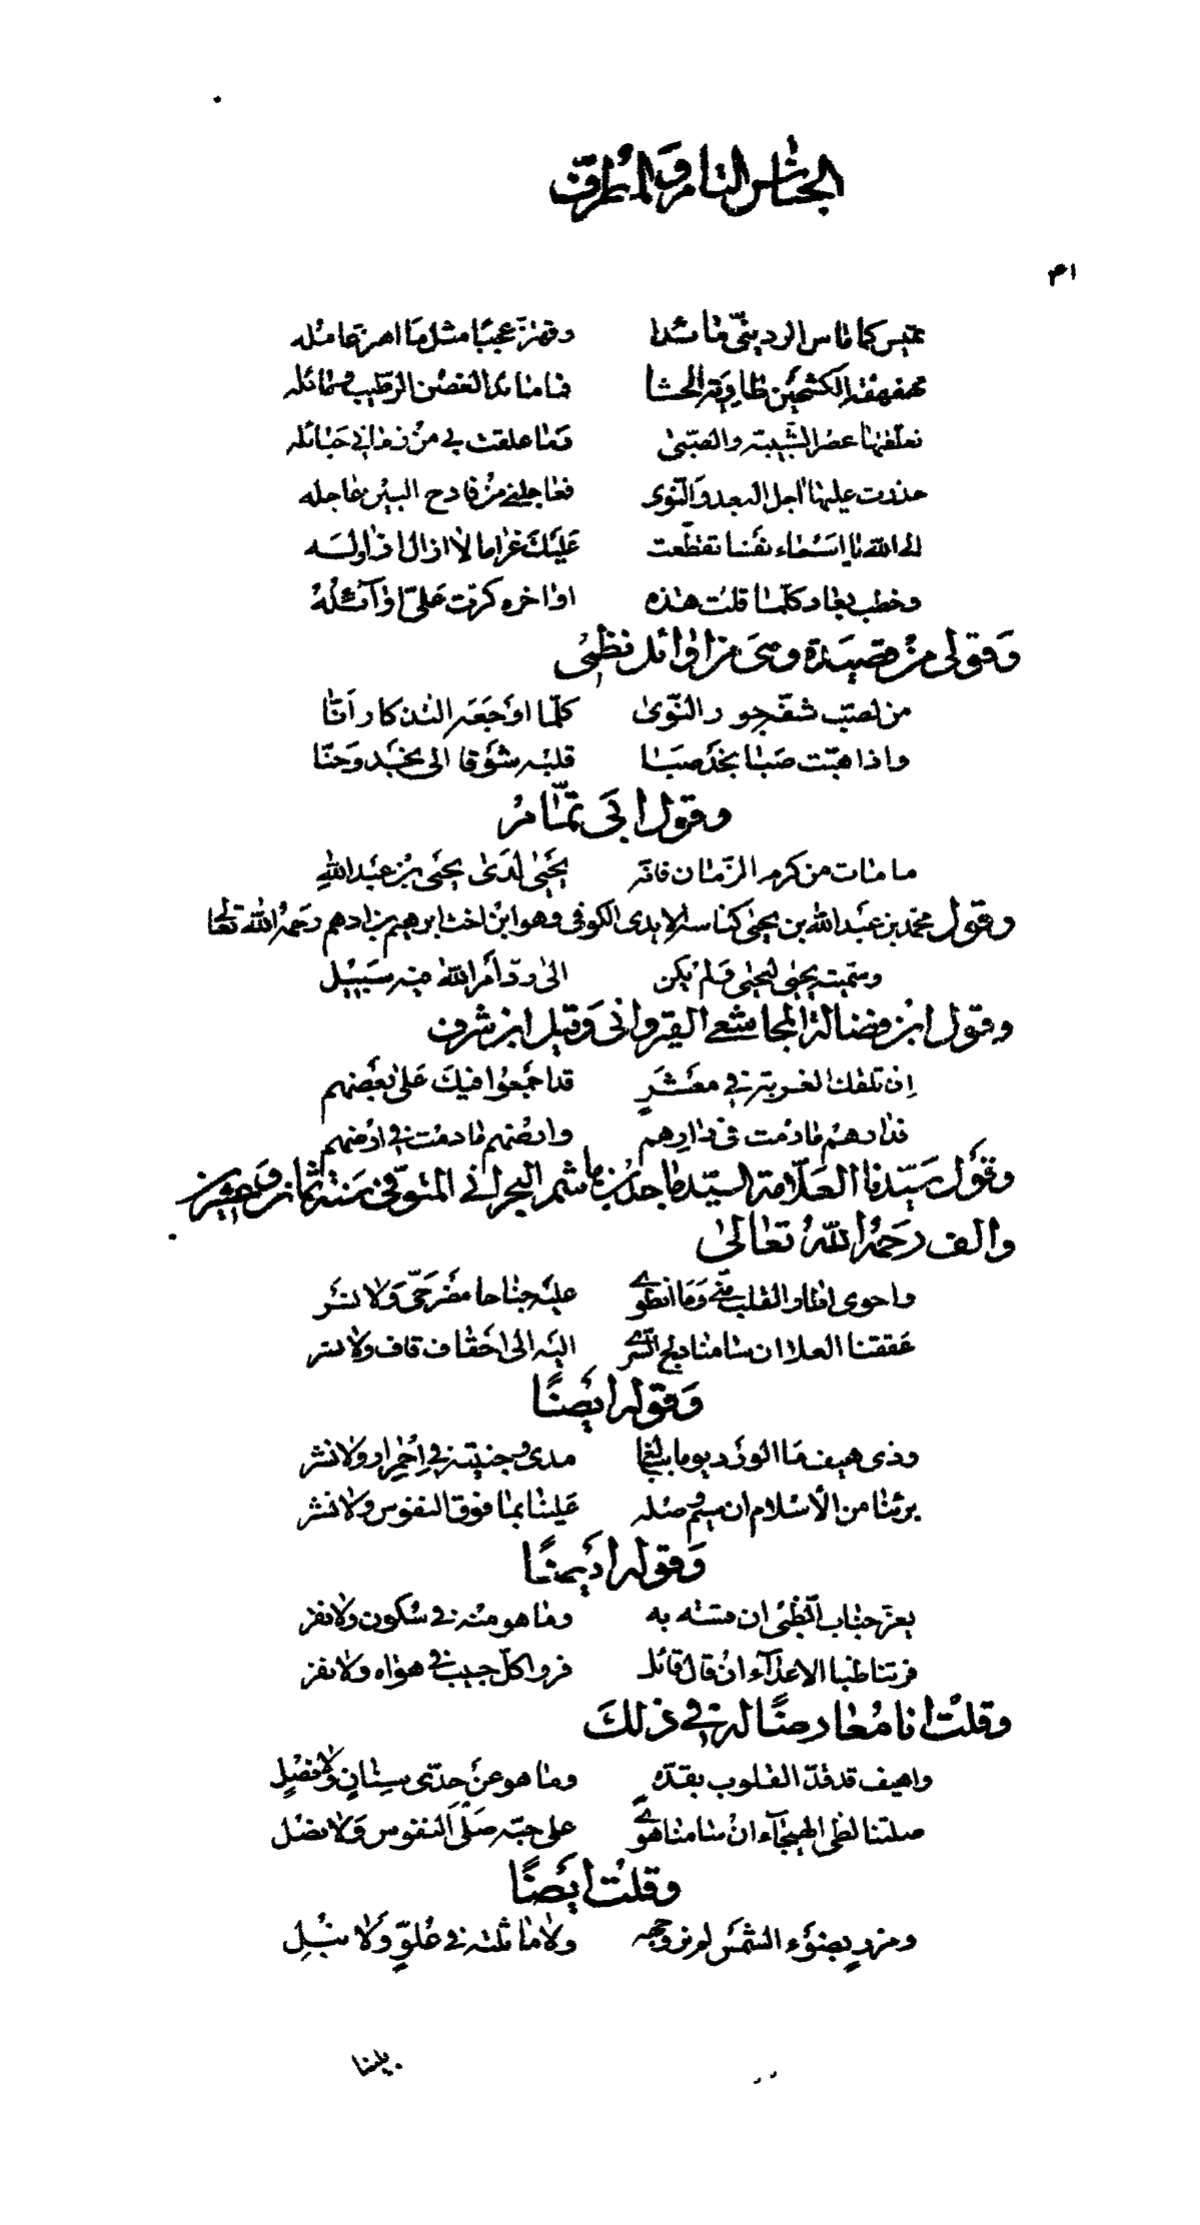 الجناس التام والمطرف
٣١
تميس كما ماس الرديني مائدا وتهتز عجبا مثل ما اهتز عامله
مهفهفة الكشحين طاوية الحشا فما مائد الغصن الرطيب ومائله
تعلقتها عصر الشبيبة والصبى وما علقت بي من زماني حبائله
حذرت عليها اجل البعد والنوى فعاجلني من فادح البين عاجله
الى الله يا اسماء نفسا تقطعت عليك غراما لا ازال ازاوله
وخطب بعاد كلما قلت هذه اواخره كرت علي اوائله
وقولي من قصيدة وهي من اوائل نظمي
من لصب شفه جور النوى كلما اوجعه التذكار انا
واذا هبت صبا نجد صبا قلبه شوقا الى نجد وحنا
وقول ابي تمام
ما مات من كرم الزمان فانه يحيى لدى يحيى بن عبد الله
وقول محمد بن عبد الله بن يحيى كناسة الاسدي الكوفي وهو ابن اخت ابرهيم بن ادهم رحمه الله تعالى
وسميته يحيى ليحيى فلم يكن الى رد امر الله فيه سبيل
وقول ابن فضالة المجاشعي القيرواني وقيل ابن شرف
ان تلقك الغربة في معشر قد اجمعوا فيك على بغضهم
فدارهم ما دمت في دارهم وارضهم ما دمت في ارضهم
وقول سيدنا العلامة السيد ماجد بن هاشم البحراني المتوفى سنة ثمان وعشرين
والف رحمه الله تعالى
واحوى اطار القلب مني وما انطوى عليه جناحا مضرحي ولا نسر
عققنا العلا ان سامنا دلج السرى اليه الى احقاف قاف ولا نسر
وقوله ايضا
وذي هيف ما الورد يوما ببالغ مدى وجنتيه في احمرار ولا نشر
برئنا من الاسلام ان سيم وصله علينا بما فوق النفوس ولا نشر
وقوله ايضا
بعز جناب الظبي ان قسته به وما هو منه في سكون ولا نفر
فرتنا ظبا الاعداء ان قال قائل فروا كل جيب في هواه ولا نفر
وقلت انا معارضا له في ذلك
واهيف قد قد القلوب بقده وما هو عن حدي سنان ولا نصل
صلتنا لظى الهيجاء ان سامنا هوى على حبه صلي النفوس ولا نصل
وقلت ايضا
ومزر بضوء الشمس لونا ووجهه ولا ماثلته في علو ولا نبل
بلينا